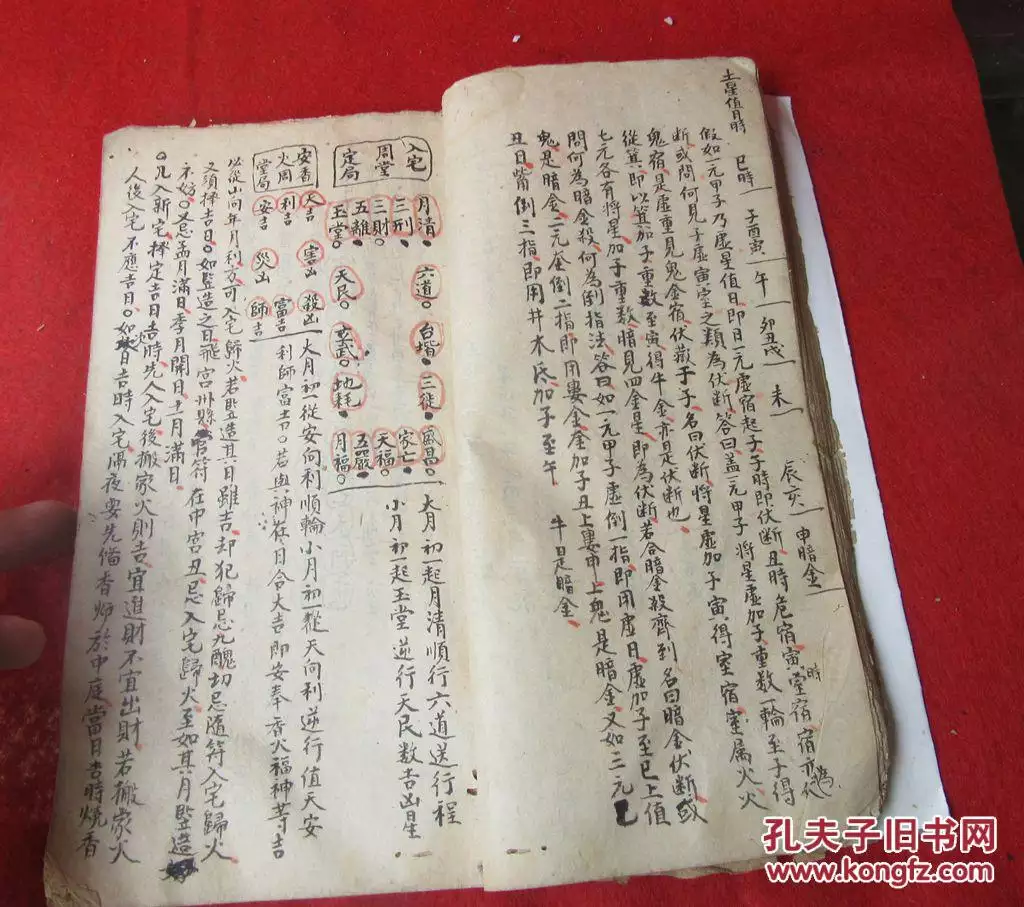 土星值日時 巳時 子酉寅 午 卯丑戌 未 辰亥 申暗金
假如一元甲子乃虛星值日即日一元虛宿起子子時即伏斷丑時危宿寅時室宿
断或問何見子虛寅室之類為伏断答曰盖一元甲子將星虛加子重数一輪至子得
鬼宿是虛重見鬼金宿伏藏于子名曰伏断將星虛加子寅得室宿室属火火
從箕即以箕加子重数至寅得牛金亦是伏断也
七元各有將星加子重数暗見四金是即為伏断若合暗金殺齊到名曰暗金伏断或
問何為暗金殺何為倒指法答曰如一元甲子虛倒一指即用虛日虛加子至巳上值
鬼是暗金二元奎倒二指即用婁金奎加子丑上婁申上鬼是暗金又如三元
丑日觜倒三指即用井木底加子至午 牛是暗金
入宅周堂定局
月清 六道 台堦 三徙 盛昌
三刑 家亡
三財 天福
五離 五嚴
玉堂 天民 玄武 地耗 月福
大月初一起月清順行六道送行程
小月初一起玉堂逆行天民数吉凶星
安香火周堂局
天吉 害凶 殺凶
利吉 富吉
安吉 災凶 師吉
大月初一從安向利順輪小月初一從天向利逆行值天安
利師富吉〇若與神在日合大吉即安奉香火福神等吉
必從山向年月利方可入宅歸火若竪造其日雖吉却犯歸忌九醜切忌隨符入宅歸火
又須择吉日〇如竪造之日飛宫州縣官符在中宫丑忌入宅歸火至如其月竪造
不妨〇又忌孟月滿日季月開日十一月滿日
〇凡入新宅择定吉日吉時先入入宅後搬家火則吉宜進財不宜出財若搬家火
人後入宅不應吉日〇如吉日吉時入宅隔夜要先俻香师於中庭當日吉時燒香
孔夫子旧书网
www.kongfz.com